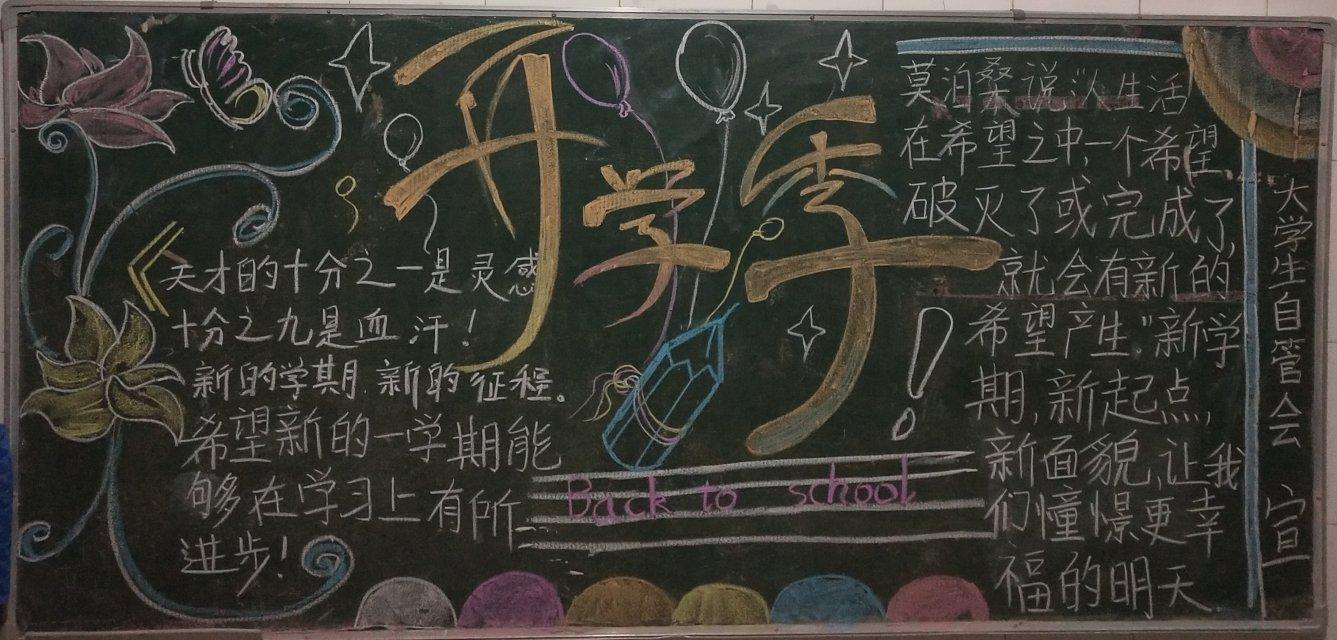 开学季！
天才的十分之一是灵感
十分之九是血汗！
新的学期，新的征程。
希望新的一学期能
够在学习上有所
进步！
Back to school
莫泊桑说:“人生活
在希望之中，一个希望
破灭了或完成了，
就会有新的
希望产生.”新学
期，新起点，
新面貌，让我
们憧憬更幸
福的明天
大学生自管会 宣